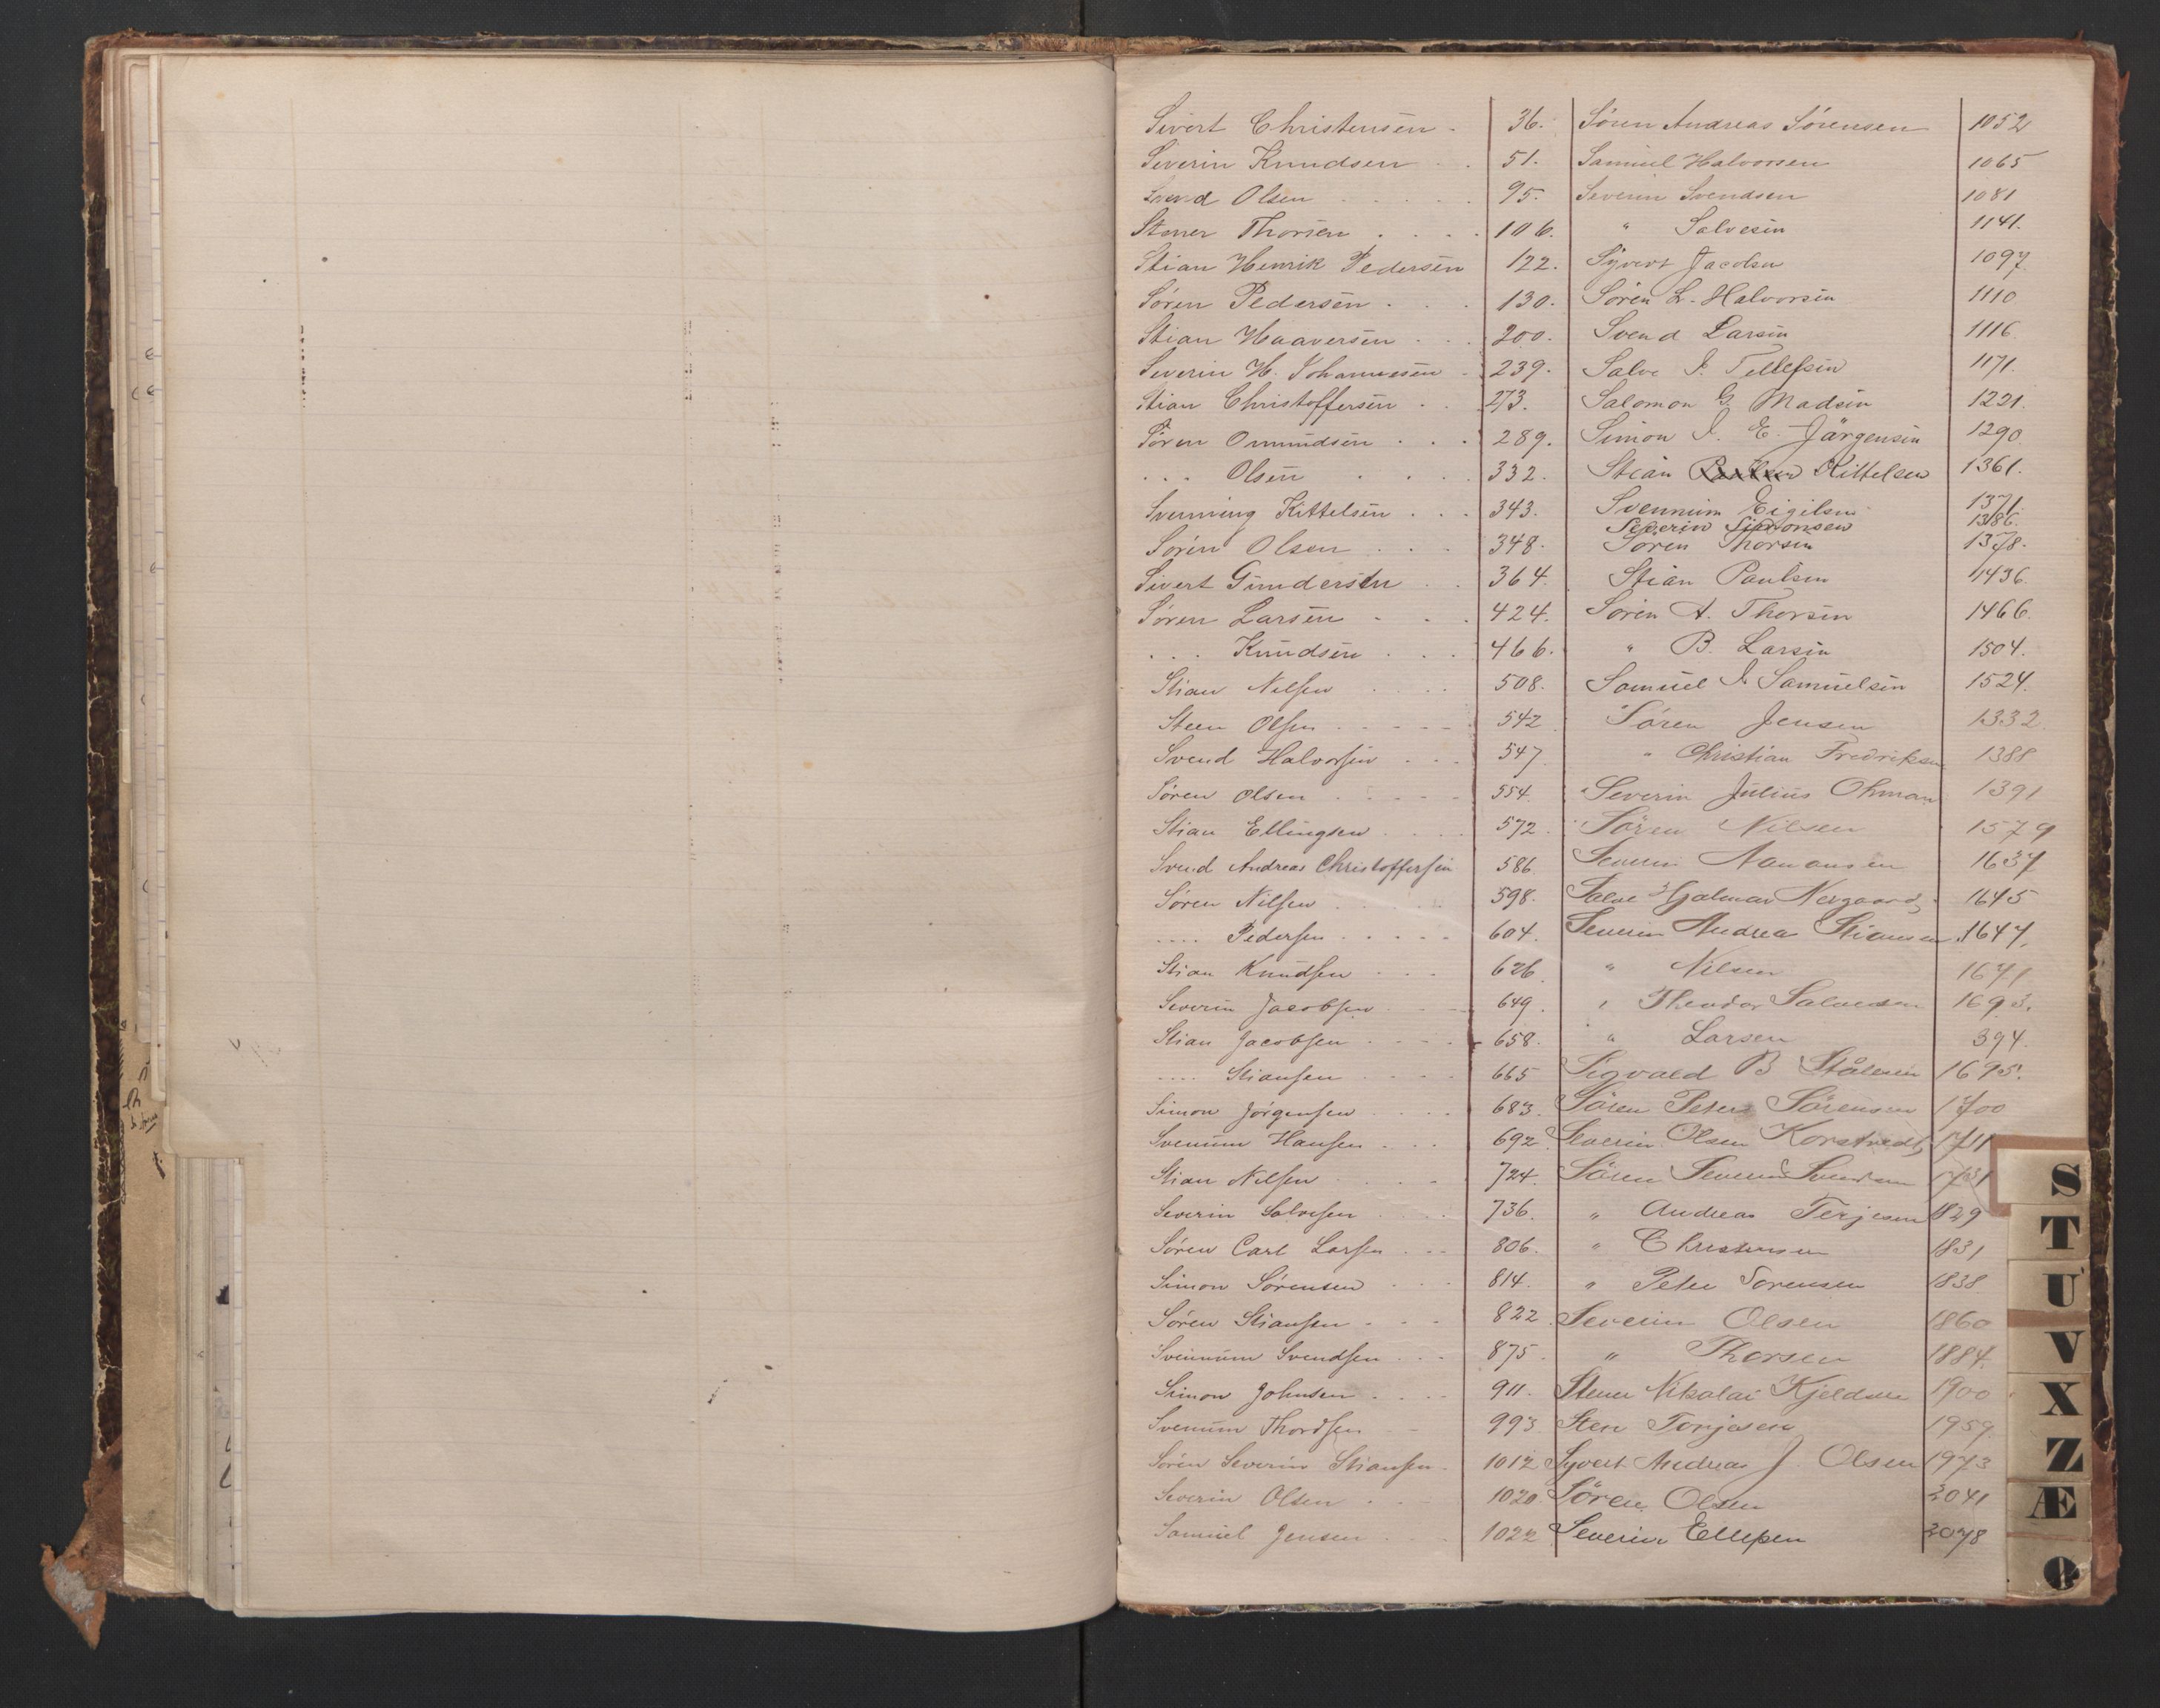 Sivert Christensen . 36.
Severin Knudsen . . 51.
Svend Olsen . . . . . 95.
Stener Thorsen . . . . 106.
Stian Henrik Pedersen 122.
Søren Pedersen . . . 130.
Stian Haaversen . . . 200.
Severin H. Johannessen . 239.
Stian Christoffersen . . 273.
Søren Omundsen . . . 289.
. . . Olsen . . . . 332.
Svenning Kittelsen . . . 343.
Søren Olsen . . . 348.
Sivert Gundersen . . 364.
Søren Larsen . . . 424.
. . . Knudsen . . . 466.
Stian Nilsen . . . . 508.
Steen Olsen . . . . . 542
Svend Halvorsen . . . 547.
Søren Olsen . . . . . 554.
Stian Ellingsen . . . . 572.
Svend Andreas Christoffersen 586.
Søren Nilsen . . . . . 598.
.... Pedersen . . . . . 604.
Stian Knudsen . . . 626.
Severin Jacobsen . . . . 649.
Stian Jacobsen . . . . 658.
.... Stiansen . . . . 665
Simon Jörgensen . . . . 683.
Svenum Hansen . . . 692
Stian Nilsen . . . . 724.
Severin Salvesen . . . . 736.
Søren Carl Larsen . . . 806.
Simon Sørensen . . . 814.
Søren Stiansen . . . 822
Svennum Svendsen . . . 875.
Simon Johnsen . . . . 911.
Svenum Thordsen . . 993
Søren Severin Stiansen . 1012
Severin Olsen . . . 1020
Samuel Jensen . . . 1022
Søren Andreas Sørensen 1052
Samuel Halvorsen 1065
Severin Svendsen 1081
" Salvesen 1141.
Syvert Jacobsen 1097.
Søren L. Halvorsen 1110
Svend Larsen 1116
Salve J. Tellefsen 1171.
Salomon G. Madsen 1221.
Simon J. E. Jørgensen 1290.
Stian Kittelsen 1361.
Svennum Eigilsen 1371
Severin Simonsen 1386.
Søren Thorsen 1378.
Stian Paulsen 1436.
Søren A. Thorsen 1466.
" B. Larsen 1504.
Samuel J. Samuelsen 1524.
Søren Jensen 1332.
" Christian Fredriksen 1388
Severin Julius Ohman 1391
Søren Nilsen 1579
Severin Aanansen 1637
Salve Hjalmar Nergaard 1645
Severin Andrea Stiansen 1647.
" Nilsen 1671
" Theodor Salvesen 1693.
" Larsen 394.
Sigvald B Stålesen 1695.
Søren Peter Sørensen 1700
Severin Olsen Korstvedt 1711
Søren Severin Svendsen 1731
" Andreas Terjesen 1829
" Christensen 1831
" Peter Sorensen 1838
Severin Olsen 1860
" Thorsen 1884.
Stener Nikolai Kjeldsen 1900
Sten Torjesen 1959.
Syvert Andreas J. Olsen 1973
Søren Olsen 2041
Severin Ellefsen 2078
S
T
U
V
X
Z
Æ
Ø